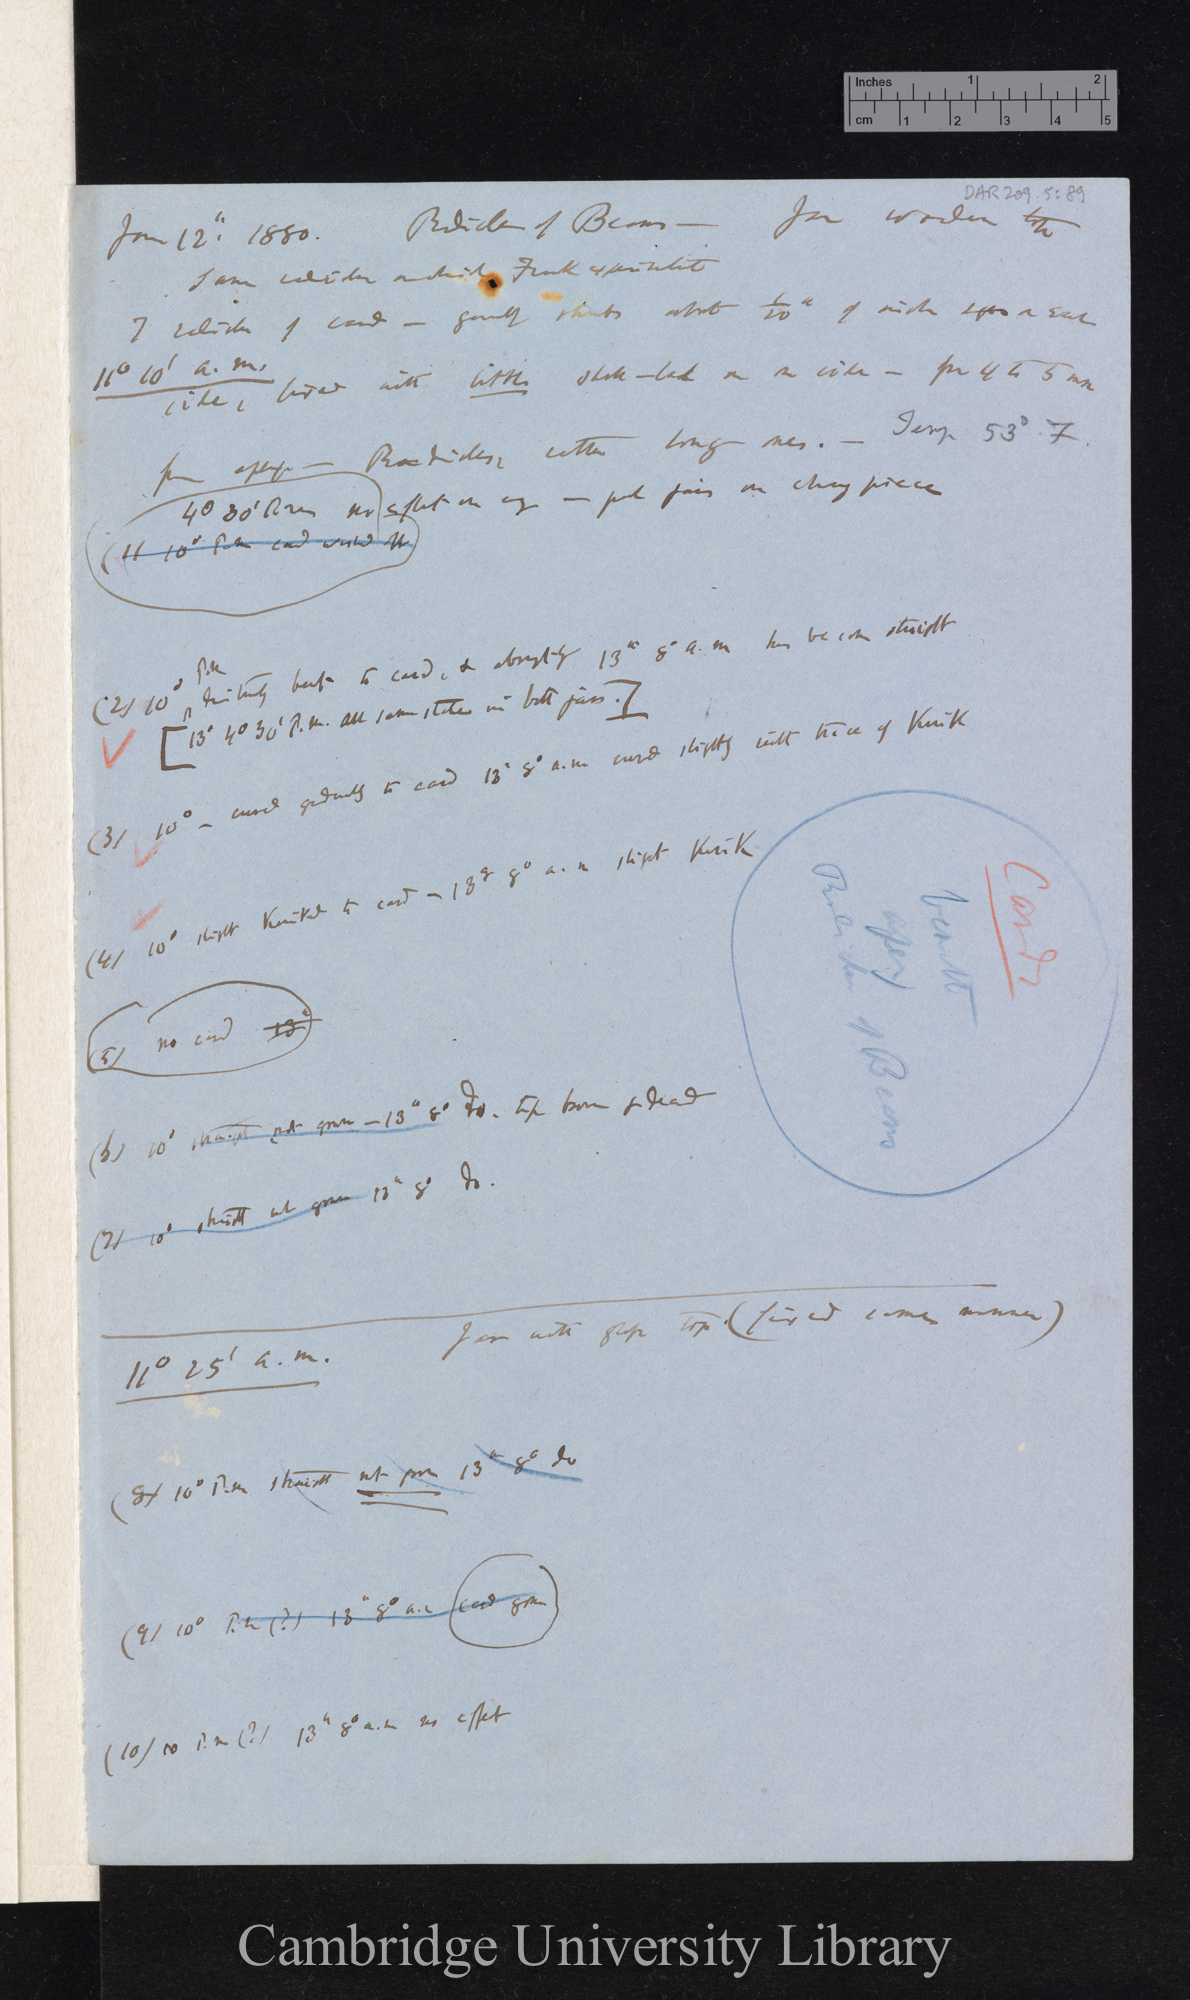 Inches 1 2
cm 1 2 3 4 5
DAR 209.5:89
Jan 12th 1880. Radicles of Beans — Jar wooden top
Same radicles which Frank
7 radicles of card — gently about 1/20th of inch square on each
11° 10' a.m.
side, fixed with little shell-lac on one side — for 4 to 5 mm
from apex — Radicles, rather long ones. — Temp 53°.7.
4° 30' P.m no effect on any — put jars on chimney piece
(1) 10° P.m card off
(2) 10° P.m bent to card, & abruptly 13th 8° a.m has become straight
[13th 4° 30' P.m. all same state in both jars.]
(3) 10° — curved gradually to card 13th 8° a.m curved slightly with trace of Kink
(4) 10° slight Kinked to card — 13th 8° a.m slight Kink
(5) no card 13th
(6) 10° straight not grown — 13th 8° do. tip brown & dead
(7) 10° straight not grown 13th 8° do.
Cards
bent
apex
Radicles of Beans
11° 25' a.m.
Jar with glass top. (fixed same manner)
(8) 10° P.m straight not grown 13th 8° do
(9) 10° P.m (?) 13th 8° a.m card gone
(10) 10 P.m (?) 13th 8° a.m no effect
Cambridge University Library